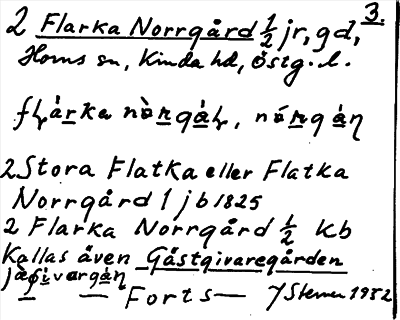 3.
2 Flarka Norrgård ½ jr, gd,
Horns sn, Kinda hd, Östg. l.
flárka nòrgáɭ, nórgáɳ
2 Stora Flatka eller Flatka
Norrgård 1 jb 1825
2 Flarka Norrgård ½ kb
Kallas även Gästgivaregården
jæʃivargáɳ
— Forts —
J Sterner 1952